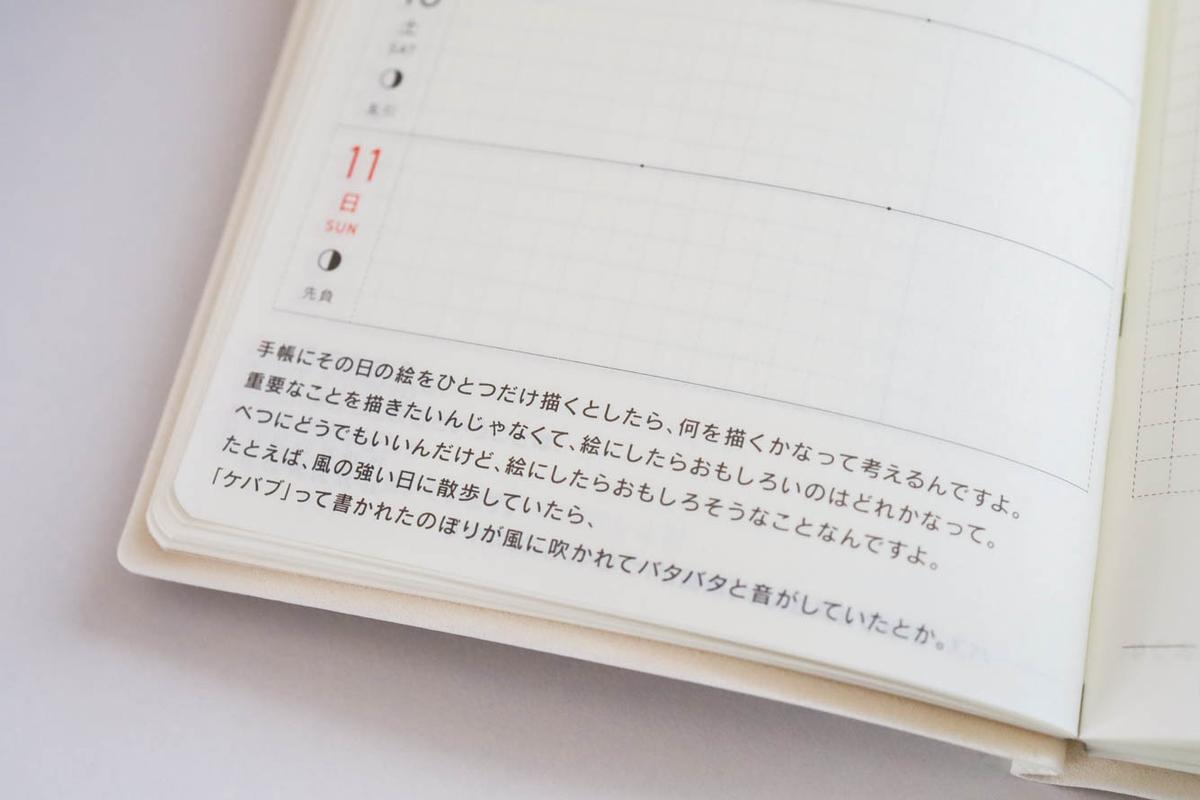 土
SAT
11
日
SUN
先負
手帳にその日の絵をひとつだけ描くとしたら、何を描くかなって考えるんですよ。
重要なことを描きたいんじゃなくて、絵にしたらおもしろいのはどれかなって。
べつにどうでもいいんだけど、絵にしたらおもしろそうなことなんですよ。
たとえば、風の強い日に散歩していたら、
「ケバブ」って書かれたのぼりが風に吹かれてバタバタと音がしていたとか。